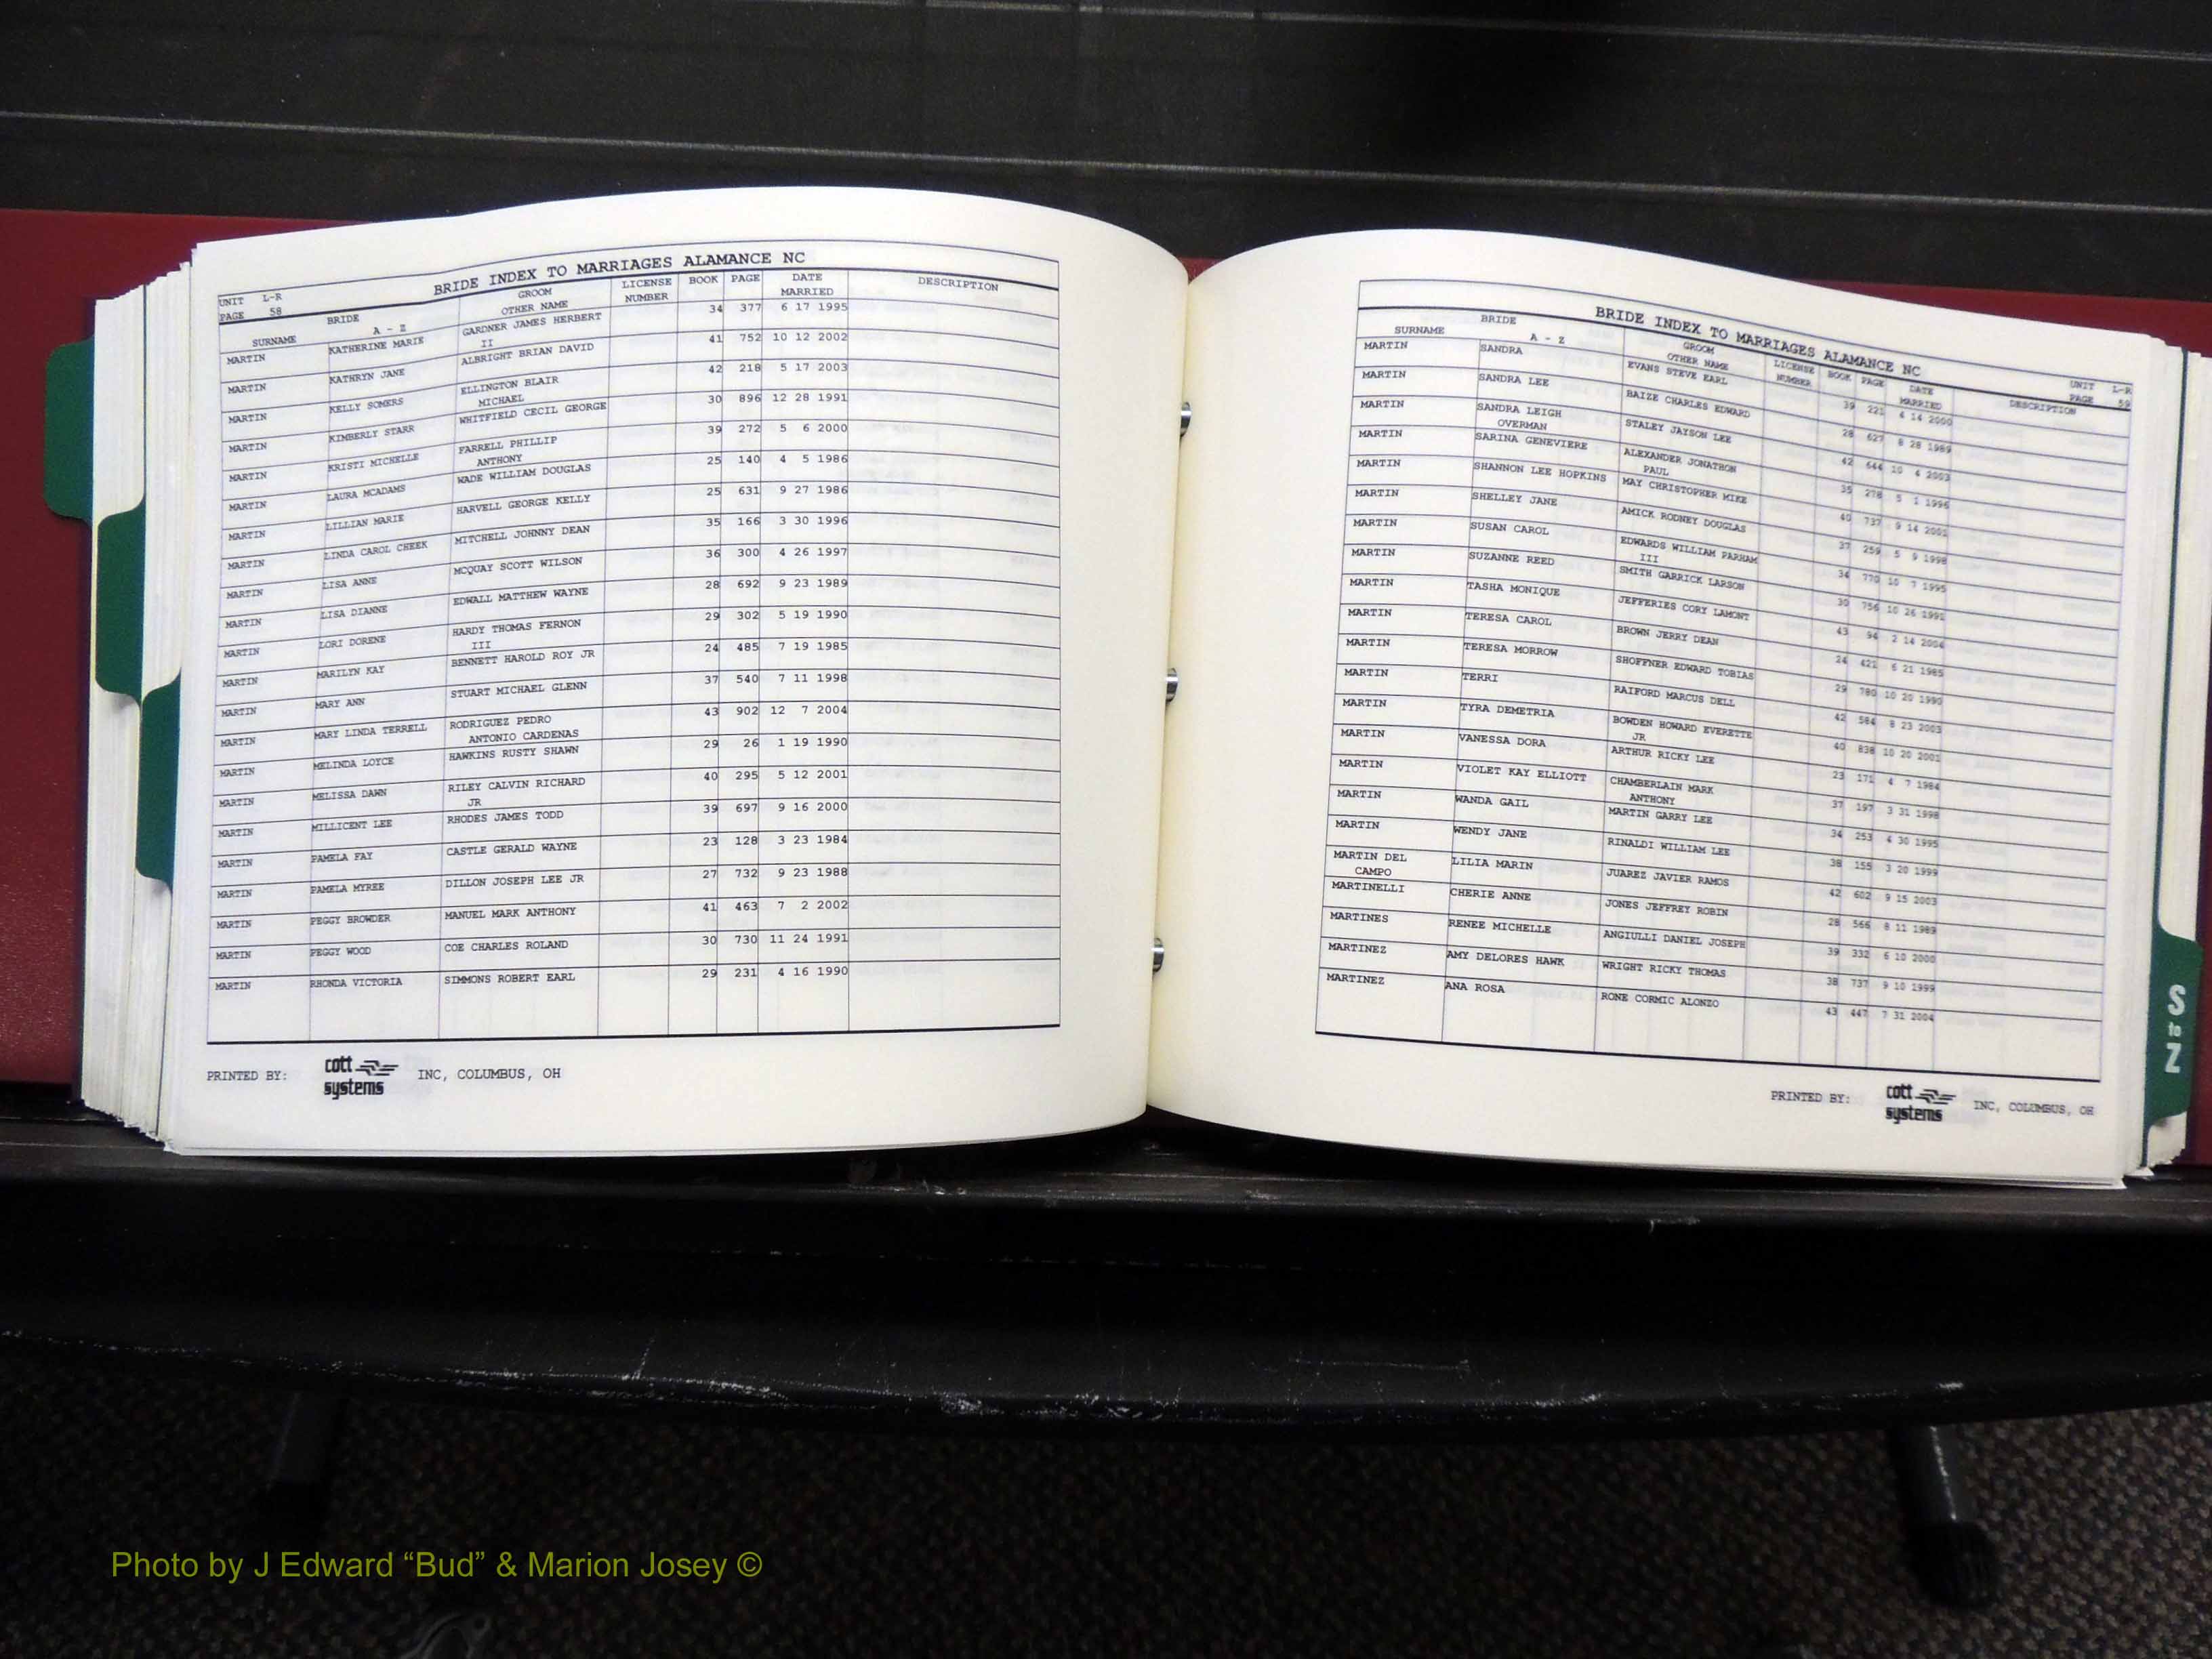 BRIDE INDEX TO MARRIAGES ALAMANCE NC
UNIT L-R
PAGE 58
SURNAME BRIDE A - Z GROOM OTHER NAME LICENSE NUMBER BOOK PAGE DATE MARRIED DESCRIPTION
MARTIN KATHERINE MARIE GARDNER JAMES HERBERT 34 377 6 17 1995
II
MARTIN KATHRYN JANE ALBRIGHT BRIAN DAVID 41 752 10 12 2002
MARTIN KELLY SOMERS ELLINGTON BLAIR 42 218 5 17 2003
MICHAEL
MARTIN KIMBERLY STARR WHITFIELD CECIL GEORGE 30 896 12 28 1991
MARTIN KRISTI MICHELLE FARRELL PHILLIP 39 272 5 6 2000
ANTHONY
MARTIN LAURA MCADAMS WADE WILLIAM DOUGLAS 25 140 4 5 1986
MARTIN LILLIAN MARIE HARVELL GEORGE KELLY 25 631 9 27 1986
MARTIN LINDA CAROL CHEEK MITCHELL JOHNNY DEAN 35 166 3 30 1996
MARTIN LISA ANNE MCQUAY SCOTT WILSON 36 300 4 26 1997
MARTIN LISA DIANNE EDWALL MATTHEW WAYNE 28 692 9 23 1989
MARTIN LORI DORENE HARDY THOMAS FERNON 29 302 5 19 1990
III
MARTIN MARILYN KAY BENNETT HAROLD ROY JR 24 485 7 19 1985
MARTIN MARY ANN STUART MICHAEL GLENN 37 540 7 11 1998
MARTIN MARY LINDA TERRELL RODRIGUEZ PEDRO 43 902 12 7 2004
ANTONIO CARDENAS
MARTIN MELINDA LOYCE HAWKINS RUSTY SHAWN 29 26 1 19 1990
MARTIN MELISSA DAWN RILEY CALVIN RICHARD 40 295 5 12 2001
JR
MARTIN MILLICENT LEE RHODES JAMES TODD 39 697 9 16 2000
MARTIN PAMELA FAY CASTLE GERALD WAYNE 23 128 3 23 1984
MARTIN PAMELA MYREE DILLON JOSEPH LEE JR 27 732 9 23 1988
MARTIN PEGGY BROWDER MANUEL MARK ANTHONY 41 463 7 2 2002
MARTIN PEGGY WOOD COE CHARLES ROLAND 30 730 11 24 1991
MARTIN RHONDA VICTORIA SIMMONS ROBERT EARL 29 231 4 16 1990
PRINTED BY: cott systems INC, COLUMBUS, OH
BRIDE INDEX TO MARRIAGES ALAMANCE NC
UNIT L-R
PAGE 59
SURNAME BRIDE A - Z GROOM OTHER NAME LICENSE NUMBER BOOK PAGE DATE MARRIED DESCRIPTION
MARTIN SANDRA EVANS STEVE EARL 39 221 4 14 2000
MARTIN SANDRA LEE BAIZE CHARLES EDWARD 28 627 8 28 1989
MARTIN SANDRA LEIGH STALEY JAYSON LEE 42 644 10 4 2003
OVERMAN
MARTIN SARINA GENEVIERE ALEXANDER JONATHON 35 278 5 1 1996
PAUL
MARTIN SHANNON LEE HOPKINS MAY CHRISTOPHER MIKE 40 737 9 14 2001
MARTIN SHELLEY JANE AMICK RODNEY DOUGLAS 37 259 5 9 1998
MARTIN SUSAN CAROL EDWARDS WILLIAM PARHAM 34 770 10 7 1995
III
MARTIN SUZANNE REED SMITH GARRICK LARSON 30 756 10 26 1991
MARTIN TASHA MONIQUE JEFFERIES CORY LAMONT 43 94 2 14 2004
MARTIN TERESA CAROL BROWN JERRY DEAN 24 421 6 21 1985
MARTIN TERESA MORROW SHOFFNER EDWARD TOBIAS 29 780 10 20 1990
MARTIN TERRI RAIFORD MARCUS DELL 42 584 8 23 2003
MARTIN TYRA DEMETRIA BOWDEN HOWARD EVERETTE 40 838 10 20 2001
JR
MARTIN VANESSA DORA ARTHUR RICKY LEE 23 171 4 7 1984
MARTIN VIOLET KAY ELLIOTT CHAMBERLAIN MARK 37 197 3 31 1998
ANTHONY
MARTIN WANDA GAIL MARTIN GARRY LEE 34 253 4 30 1995
MARTIN WENDY JANE RINALDI WILLIAM LEE 38 155 3 20 1999
MARTIN DEL LILIA MARIN JUAREZ JAVIER RAMOS 42 602 9 15 2003
CAMPO
MARTINELLI CHERIE ANNE JONES JEFFREY ROBIN 28 566 8 11 1989
MARTINES RENEE MICHELLE ANGIULLI DANIEL JOSEPH 39 332 6 10 2000
MARTINEZ AMY DELORES HAWK WRIGHT RICKY THOMAS 38 737 9 10 1999
MARTINEZ ANA ROSA RONE CORMIC ALONZO 43 447 7 31 2004
PRINTED BY: cott systems INC, COLUMBUS, OH
S
to
Z
Photo by J Edward “Bud” & Marion Josey ©